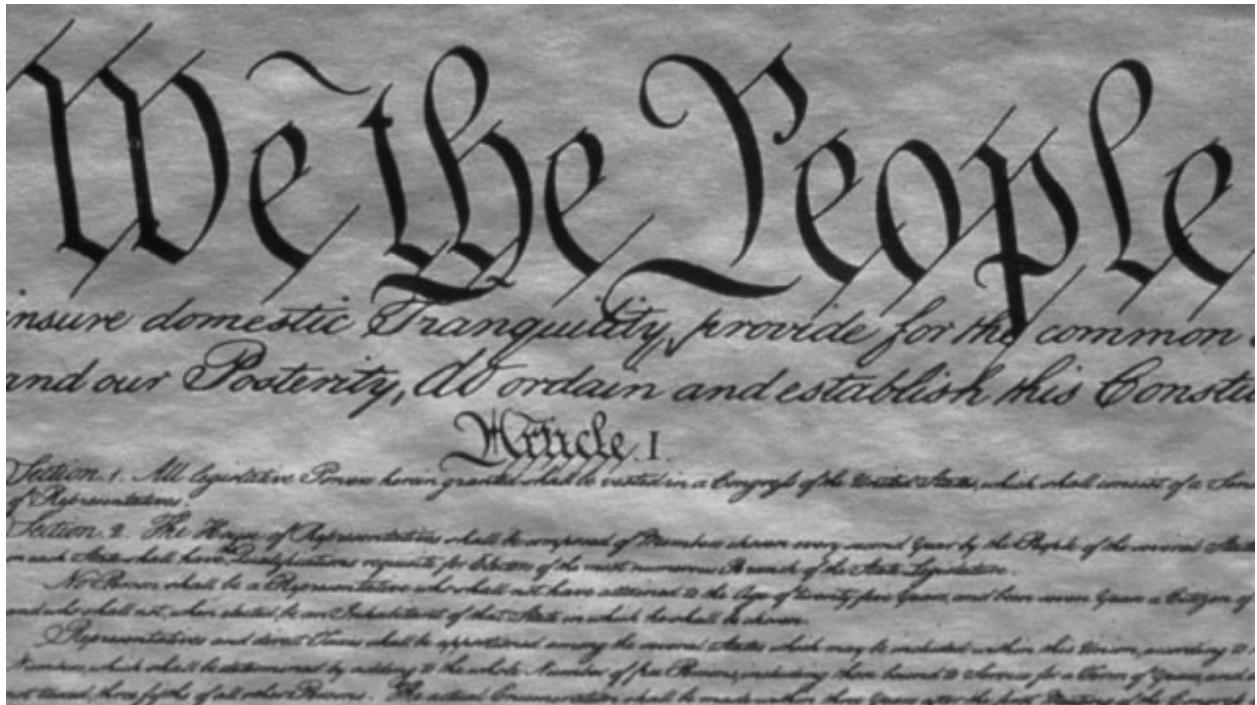 We the People
insure domestic Tranquility, provide for the common
and our Posterity, do ordain and establish this Constit
Article. I.
Section. 1. All legislative Powers herein granted shall be vested in a Congress of the United States, which shall consist of a Sen
of Representatives.
Section. 2. The House of Representatives shall be composed of Members chosen every second Year by the People of the several States
in each State shall have Qualifications requisite for Electors of the most numerous Branch of the State Legislature.
No Person shall be a Representative who shall not have attained to the Age of twenty five Years, and been seven Years a Citizen of
and who shall not, when elected, be an Inhabitant of that State in which he shall be chosen.
Representatives and direct Taxes shall be apportioned among the several States which may be included within this Union, according to
Numbers, which shall be determined by adding to the whole Number of free Persons, including those bound to Service for a Term of Years, and
not taxed, three fifths of all other Persons. The actual Enumeration shall be made within three Years after the first Meeting of the Congress